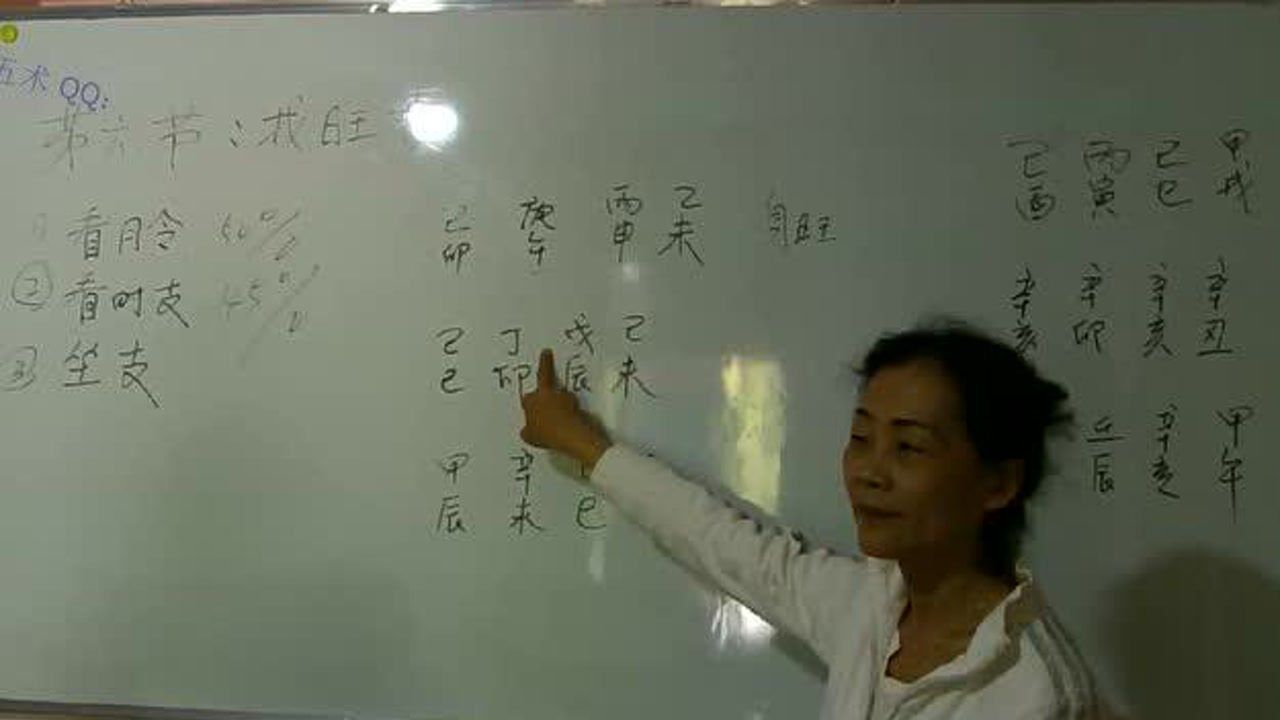 五术 QQ:
第六节:找旺
① 看月令 50%
② 看时支 45%
③ 坐支
己 庚 丙 己 身旺
卯 午 申 未
己 丁 戊 己
巳 卯 辰 未
甲 辛
辰 未 巳
己 丙 己 甲
酉 寅 巳 戌
辛 辛 辛 辛
亥 卯 亥 丑
壬 辛 甲
辰 亥 午